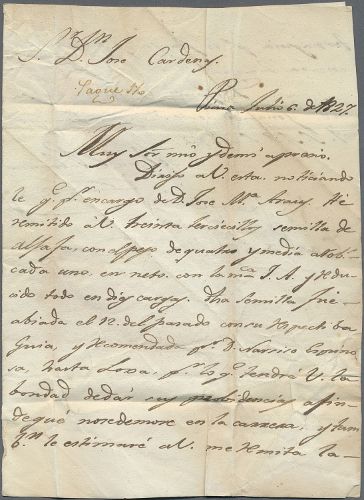 S.r D.n Jose Cardeny.
Piura Julio 6. de 1827.
Muy Sor mio y de mi aprecio.
Dirijo a V. esta. noticiando
le q.e p.r encargo de D. Jose M.a Araus. He
remitido a V. treinta tercios semilla de
alfalfa, con el peso de quatro y media arrob.
cada uno. en neto. con la m.ca J. A. y redu
cido todo en diez cargas. Dha semilla fue
abiada el 12. del pasado con su respectiba
Guia, y recomendad. p.r D. Narciso Espino
sa, hasta Loxa, p.r lo q.e tendrá V. la
bondad de dar sus probidencias a fin
de qué no se demore en la carrera, y tam
b.n le estimaré a V. me remita la-